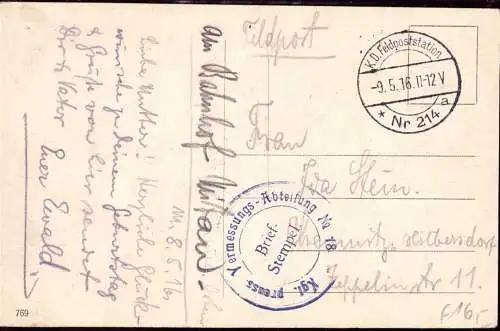 Feldpost
K.D. Feldpoststation
-9.5.16. 11-12 V
* Nr 214 a
Frau
Ida Stein.
Chemnitz, Hilbersdorf
Zeppelinstr 11.
Kgl. preuss Vermessungs-Abteilung No 18
Brief.
Stempel.
Am Bahnhof Mitau
M. 8.5.16.
Liebe Mutter! Herzliche Glück-
wünsche zu Deinem Geburtstag
& Grüße von hier sendet
Dir & Vater
Euer Ewald.
769